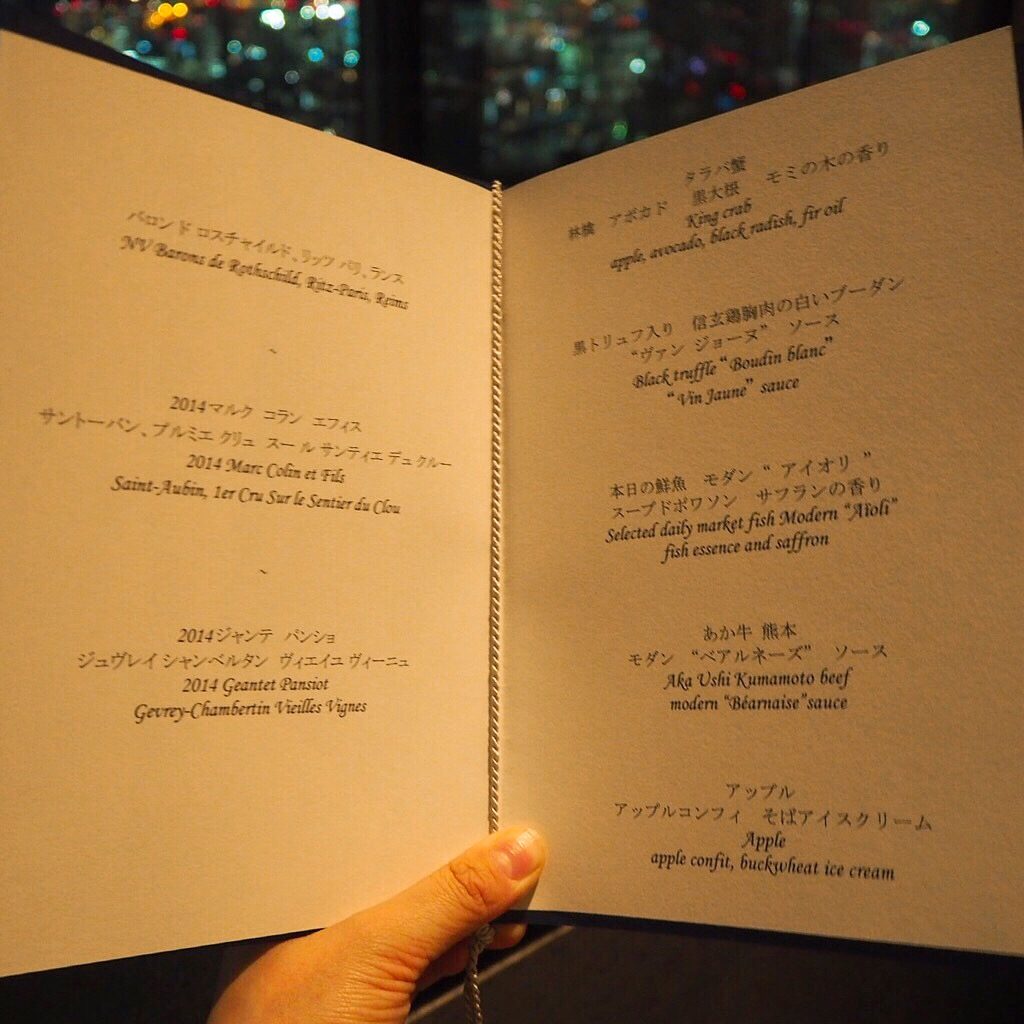 バロン ド ロスチャイルド、リッツ パリ、ランス
NV Barons de Rothschild, Ritz-Paris, Reins
~
2014マルク コラン エフィス
サントーバン、プルミエ クリュ スー ル サンティエ デュ クルー
2014 Marc Colin et Fils
Saint-Aubin, 1er Cru Sur le Sentier du Clou
~
2014ジャンテ パンショ
ジュヴレイ シャンベルタン ヴィエイユ ヴィーニュ
2014 Geantet Pansiot
Gevrey-Chambertin Vieilles Vignes
タラバ蟹
林檎 アボカド 黒大根 モミの木の香り
King crab
apple, avocado, black radish, fir oil
黒トリュフ入り 信玄鶏胸肉の白いブーダン
“ヴァン ジョーヌ” ソース
Black truffle “Boudin blanc”
“Vin Jaune” sauce
本日の鮮魚 モダン “ アイオリ ”
スープドポワソン サフランの香り
Selected daily market fish Modern “Aïoli”
fish essence and saffron
あか牛 熊本
モダン “ベアルネーズ” ソース
Aka Ushi Kumamoto beef
modern “Béarnaise” sauce
アップル
アップルコンフィ そばアイスクリーム
Apple
apple confit, buckwheat ice cream